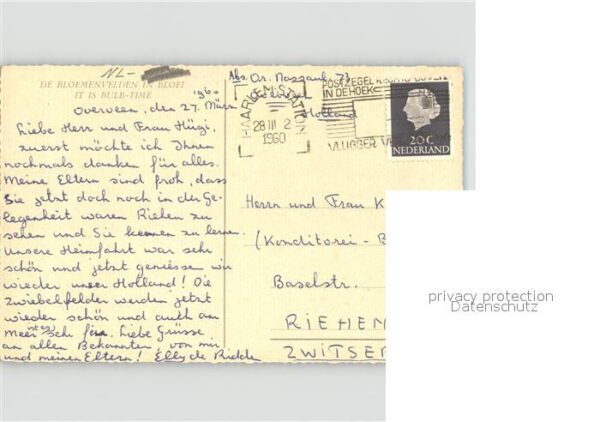 NL-
DE BLOEMENVELDEN IN BLOEI
IT IS BULB-TIME
1960
Overveen, den 27. März
Liebe Herr und Frau Hügi,
zuerst möchte ich Ihnen
nochmals danken für alles.
Meine Eltern sind froh, dass
Sie jetzt doch noch in der Ge-
legenheit waren Riehen zu
sehen und Sie kennen zu lernen.
Unsere Heimfahrt war sehr
schön und jetzt geniessen wir
wieder unser Holland! Die
Zwiebelfelder werden jetzt
wieder schön und auch am
Meer ist es sehr fein. Liebe Grüsse
an allen Bekannten, von mir
und meinen Eltern! Elly de Ridde
Abs. Or. Nassaul. 73
Holland
HAARLEM STATION
28 III 2
1960
POSTZEGEL RECHTS BOVEN
IN DE HOEK
VLUGGER
20 C
NEDERLAND
Herrn und Frau
(Konditorei -
Baselstr.
RIEHEN
ZWITSER
privacy protection
Datenschutz